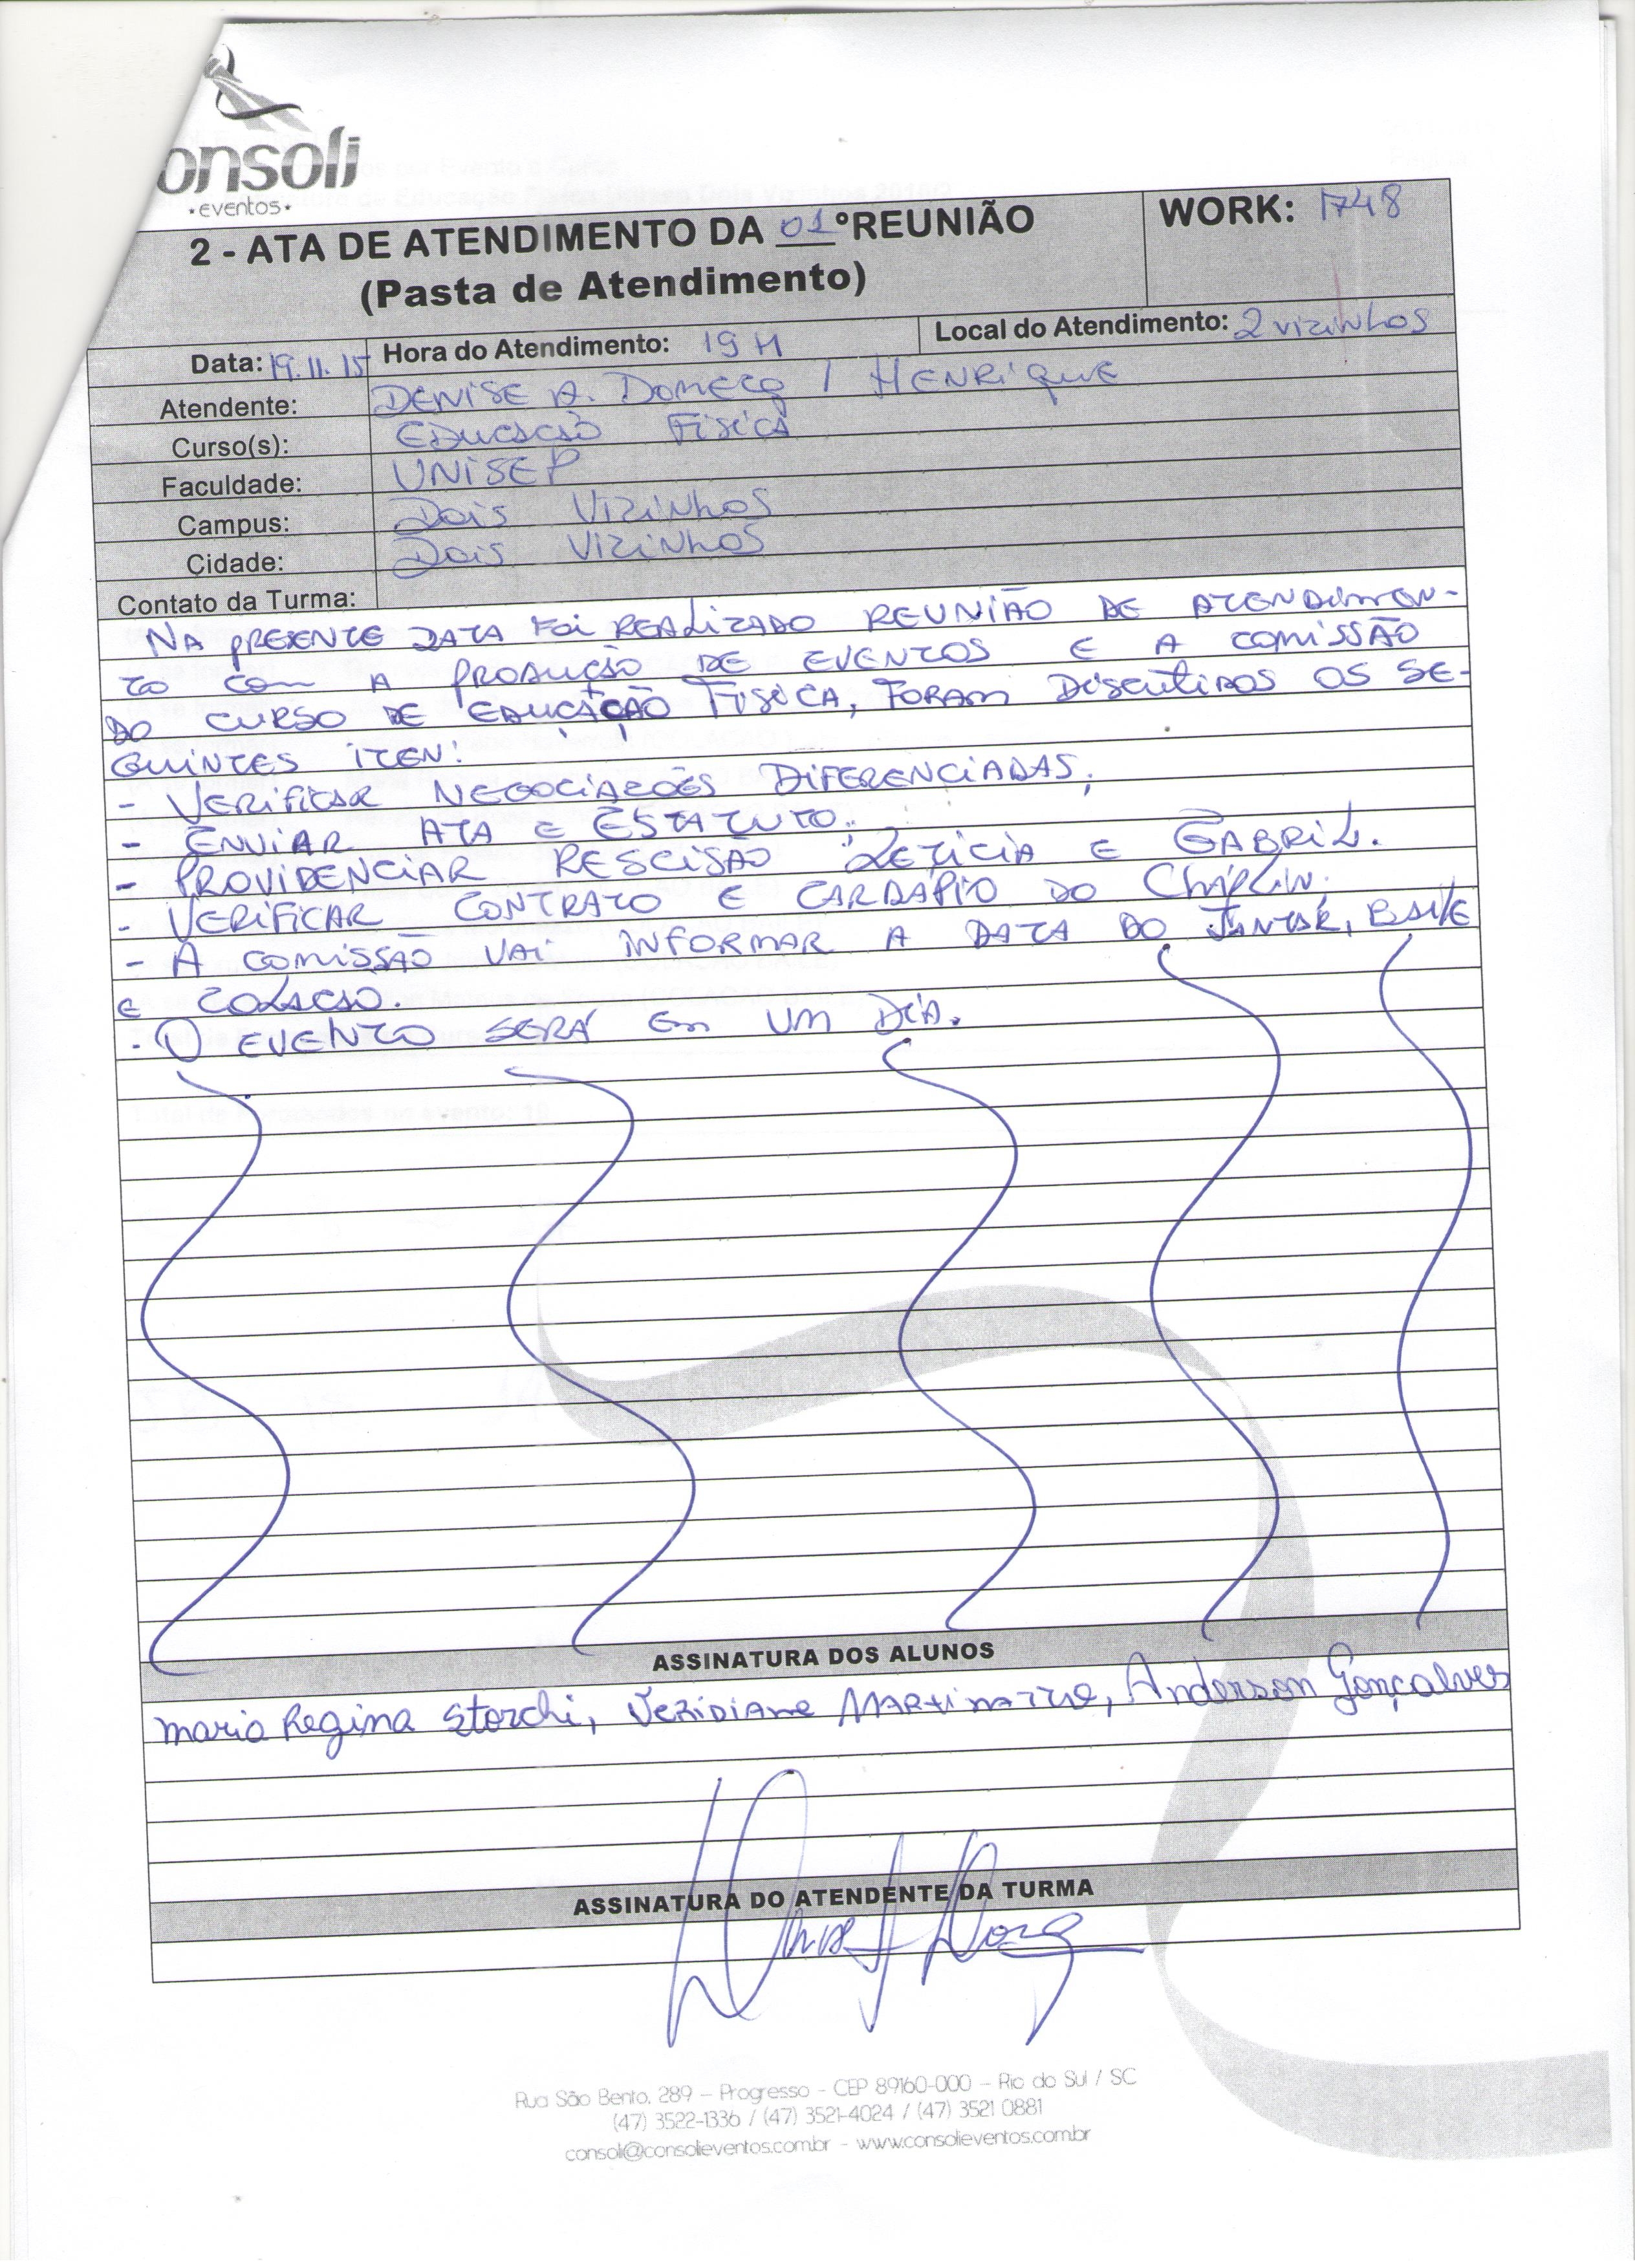 onsoli
•eventos•
2 - ATA DE ATENDIMENTO DA 01ºREUNIÃO
(Pasta de Atendimento)
WORK: 1748
Data: 19.11.15 Hora do Atendimento: 19 H Local do Atendimento: 2 vizinhos
Atendente: DENISE A. / HENRIQUE
Curso(s): EDUCAÇÃO FÍSICA
Faculdade: UNISEP
Campus: Dois Vizinhos
Cidade: Dois Vizinhos
Contato da Turma:
NA PRESENTE DATA FOI REALIZADO REUNIÃO DE ATENDIMEN-
TO COM A PRODUÇÃO DE EVENTOS E A COMISSÃO
DO CURSO DE EDUCAÇÃO FISICA, FORAM DISCUTIDOS OS SE-
GUINTES ITEN:
- VERIFICAR NEGOCIAÇÕES DIFERENCIADAS;
- ENVIAR ATA E ESTATUTO;
- PROVIDENCIAR RESCISÃO LETICIA E GABRIL.
- VERIFICAR CONTRATO E CARDÁPIO DO CHAPLIN.
- A COMISSÃO VAI INFORMAR A DATA DO JANTAR, BAILE
E COLAÇÃO.
- O EVENTO SERÁ EM UM DIA.
ASSINATURA DOS ALUNOS
Maria Regina Storchi, Veridiane Martinazzo, Anderson Gonçalves
ASSINATURA DO ATENDENTE DA TURMA
Rua São Bento, 289 – Progresso – CEP 89160-000 – Rio do Sul / SC
(47) 3522-1336 / (47) 3521-4024 / (47) 3521 0881
consoli@consolieventos.com.br - www.consolieventos.com.br